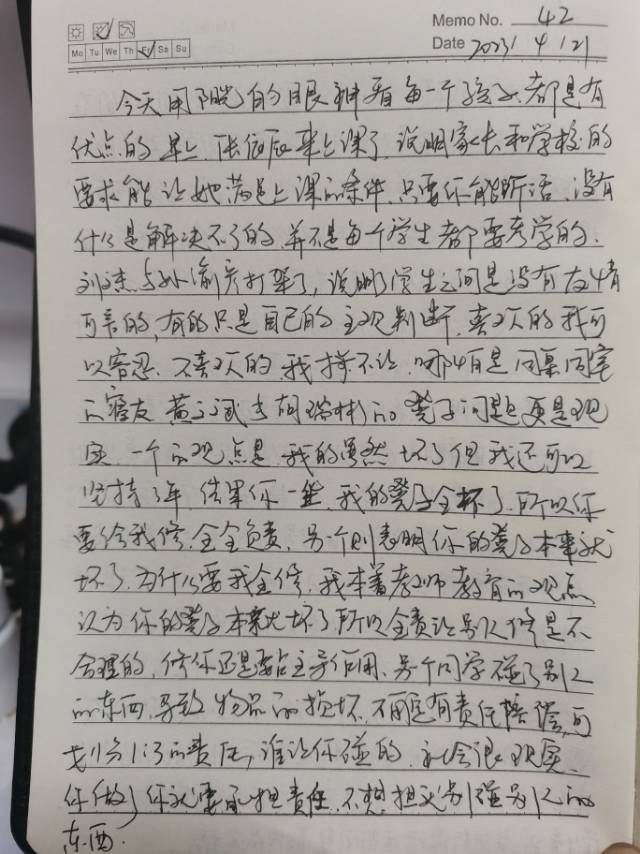 Memo No. 42
Mo Tu We Th Fr Sa Su
Date 2023/4/21
今天用阳光的眼神看每一个孩子.都是有
优点的.早上.张 来上课了.说明家长和学校的
要求能让她满足上课的条件.只要你能听话.没有
什么是解决不了的.并不是每个学生都要考学的.
刘 与 打架了,说明学生之间是没有友情
可言的,有的只是自己的主观判断.喜欢的我可
以容忍.不喜欢的.我 不让.哪怕是同桌同宅
的 友 黄 与胡 的凳子问题更是现
实.一个的观点是.我的虽然坏了但我还可以
坚持3年.结果你一坐.我的凳子全坏了.所以你
要给我修.全全负责.另一个则表明你的凳子本来就
坏了.为什么要我全修.我本着老师教育的观点
认为你的凳子本来就坏了所以全责让别人修是不
合理的,修你还是要占主导作用.另一个同学碰了别人
的东西.导致物品的损坏.不 有责任赔偿,可
划分1:3的责任,谁让你碰的.社会很现实.
你做了你就要承担责任.不想担义别碰别人的
东西.